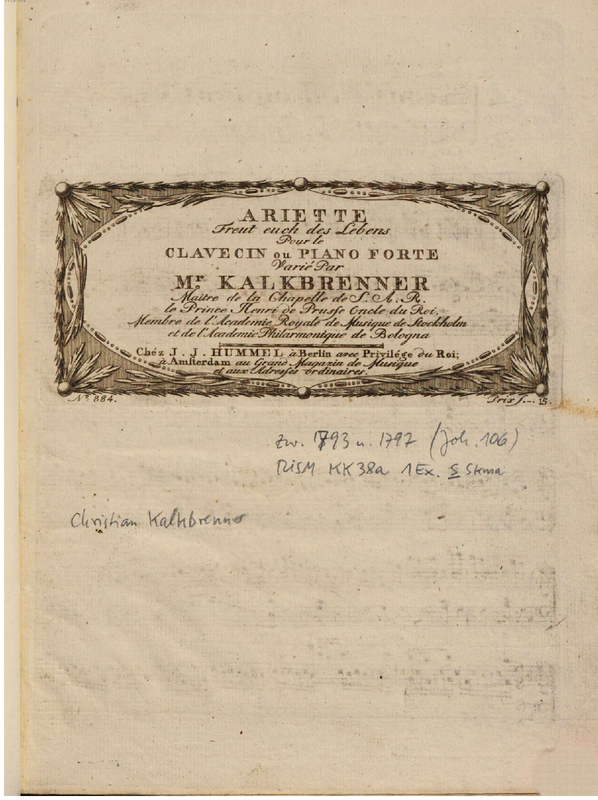 ARIETTE
Freut euch des Lebens
Pour le
CLAVECIN ou PIANO FORTE
Varié Par
Mr. KALKBRENNER
Maitre de la Chapelle de S. A. R.
le Prince Henri de Prusse Oncle du Roi,
Membre de l'Academie Royale de Musique de Stockholm
et de l'Academie Philarmonique de Bologna
Chéz J. J. HUMMEL, à Berlin avec Privilége du Roi;
à Amsterdam au Grand Magazin de Musique
et aux Adresses ordinaires.
No. 884. Prix f.-. 15.
zw. 1793 u. 1797 (Joh. 106)
RISM KK 38a 1 Ex. S Skma
Christian Kalkbrenner